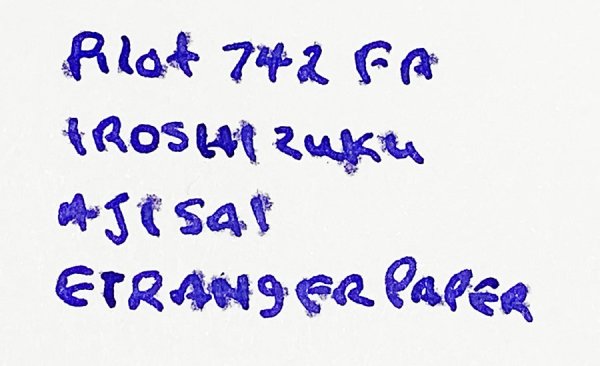 Pilot 742 FA
IROSHIzuku
AJISAI
ETRANGER PAPER